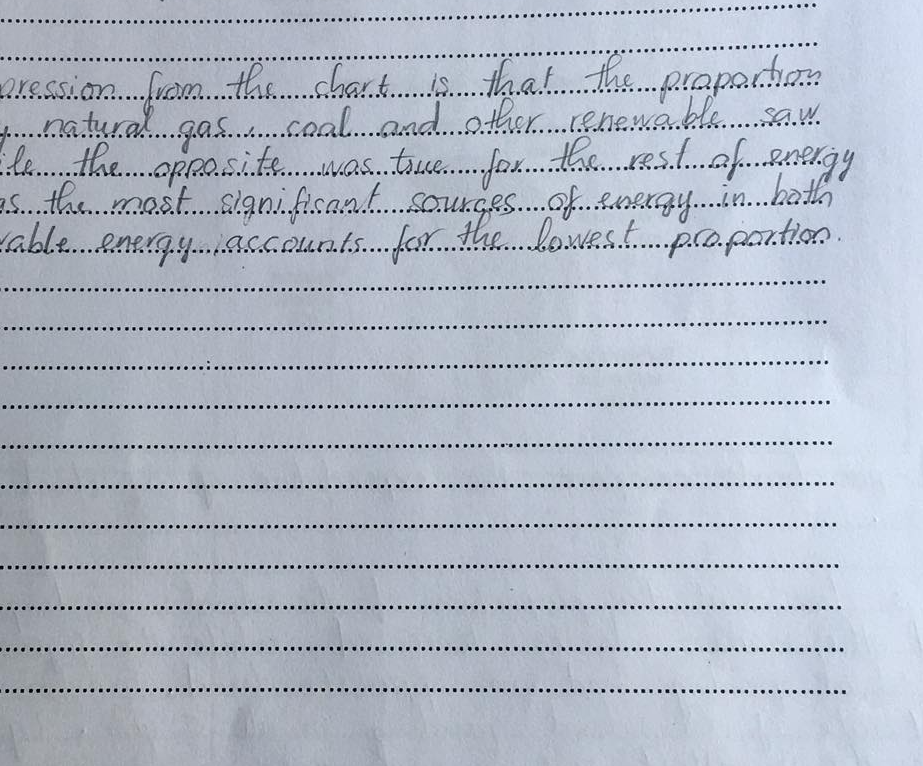 pression from the chart is that the proportion
natural gas, coal and other renewable saw
ile the opposite was true for the rest of energy
as the most significant sources of energy in both
able energy accounts for the lowest proportion.